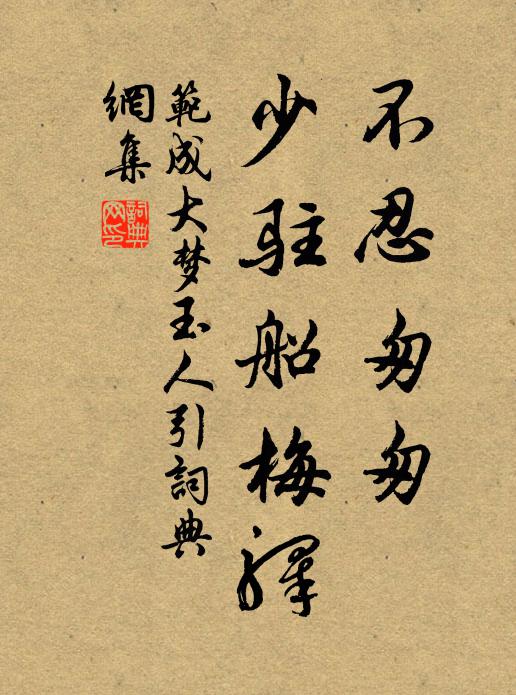 不忍匆匆
少驻船梅驿
範成大梦玉人引詞典
網集
詞典
网印